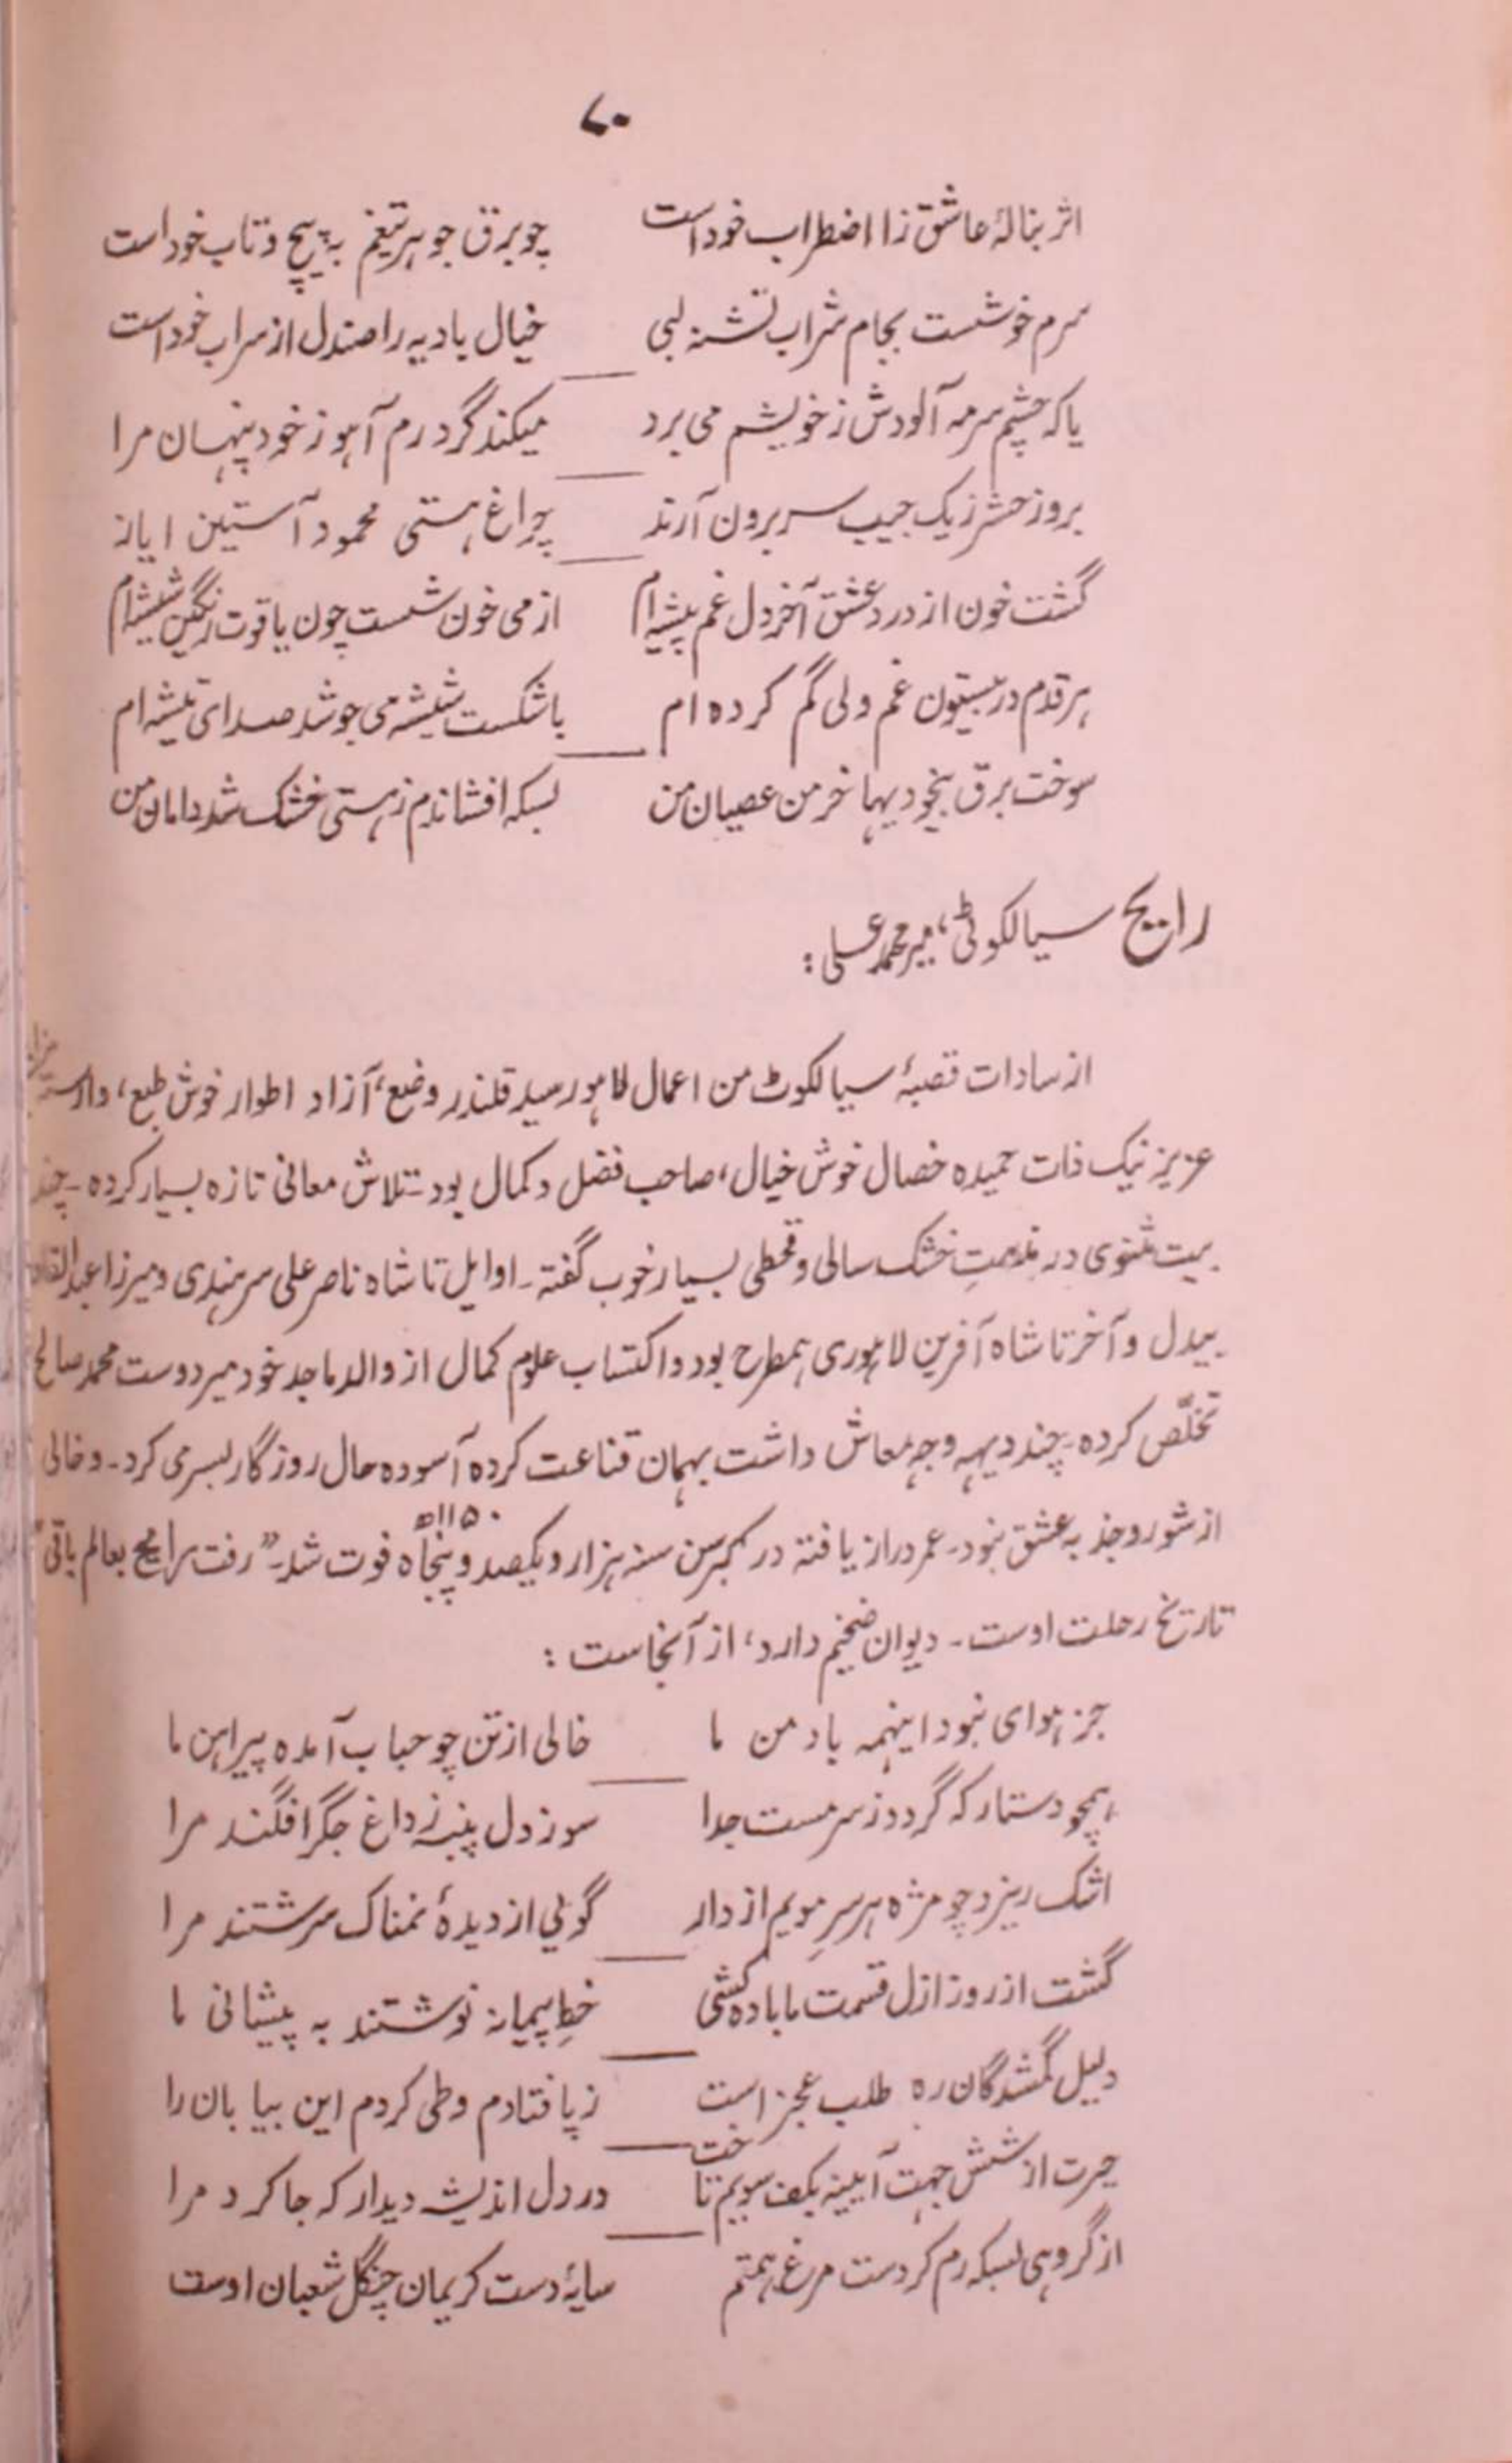 ۷۰
اثر بنالۂ عاشق زا اضطراب خوداست چو برق جوهر تیغم به پیچ و تاب خوداست
سرم خوشست بجام شراب تشنه لبی خیال بادیه را صندل از سراب خوداست
یا که چشم سرمه آلودش ز خویشم می برد میکند گرد رم آهو ز خود پنهان مرا
بروز حشر ز یک جیب سر برون آرند چراغ هستی محمود آستین ایاز
گشت خون از درد عشق آخر دل غم پیشه ام از می خون شست چون یاقوت رنگین شیشه ام
هر قدم در بیستون غم ولی گم کرده ام با شکست شیشه می جوشد صدای تیشه ام
سوخت برق بیخودیها خرمن عصیان من بسکه افشاندم ز هستی خشک شد دامان من
رایج سیالکوٹی، میر محمد علی :
از سادات قصبۂ سیالکوٹ من اعمال لاهور سید قلندر وضع، آزاد اطوار خوش طبع، وارسته
عزیز نیک ذات حمیده خصال خوش خیال، صاحب فضل و کمال بود۔ تلاش معانی تازه بسیار کرده۔ چند
بیت مثنوی در مذمتِ خشک سالی و قحطی بسیار خوب گفته۔ اوایل تا شاه ناصر علی سرهندی و میرزا عبدالقادر
بیدل و آخر تا شاه آفرین لاهوری همطرح بود و اکتساب علوم کمال از والد ماجد خود میر دوست محمد صالح
تخلّص کرده۔ چند دیهه وجه معاش داشت بهمان قناعت کرده آسوده حال روزگار بسر می کرد۔ و خالی
از شور و جذبه عشق نبود۔ عمر دراز یافته در کبر سن سنه هزار و یکصد و پنجاه ۱۱۵۰ھ فوت شد۔ "رفت رایج بعالم باقی"
تاریخ رحلت اوست۔ دیوان ضخیم دارد، از آنجاست :
جز هوای نبود اینهمه باد من ما خالی از تن چو حباب آمده پیراهن ما
همچو دستار که گردد ز سر مست جدا سوز دل پنبه ز داغ جگر افگند مرا
اشک ریزد چو مژه هر سرِ مویم از دار گویٔی از دیدۂ نمناک سرشتند مرا
گشت از روز ازل قسمت ما باده کشی خطِ پیمانه نوشتند به پیشانی ما
دلیل گمشدگان ره طلب عجز است ز پا فتادم و طی کردم این بیابان را
حیرت از شش جهت آیینه بکف سویم تاخت در دل اندیشه دیدار که جا کرد مرا
از گروهی بسکه رم کردست مرغ همتم سایۂ دست کریمان چنگل شعبان اوست